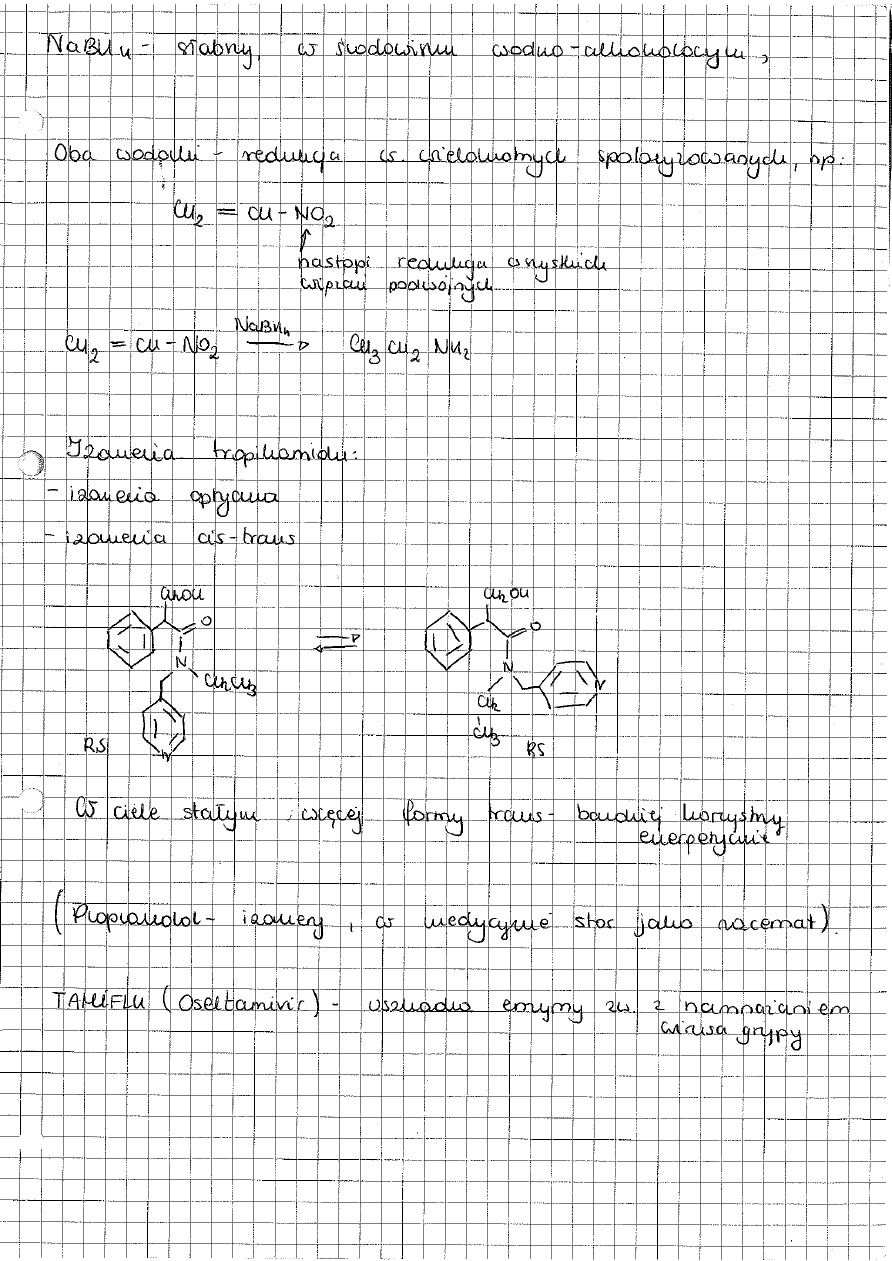 NaBH4 - stabilny, w środowisku wodno-alkoholowym,
Oba wodorki - redukcja w. wielokrotnych spolaryzowanych, np:
CH2 = CH - NO2
nastąpi redukcja wszystkich
wiązań podwójnych
CH2 = CH - NO2 NaBH4 → CH3 CH2 NH2
Izomeria tropikamidu:
- izomeria optyczna
- izomeria cis-trans
CH2OH CH2OH
O O
N N
CH2CH3 N
CH2
CH3
N
RS RS
W ciele stałym więcej formy trans - bardziej korzystny
energetycznie
(Propranolol - izomery, w medycynie stos. jako racemat).
TAMIFLU (Oseltamivir) - uszkadza enzymy zw. z namnażaniem
wirusa grypy